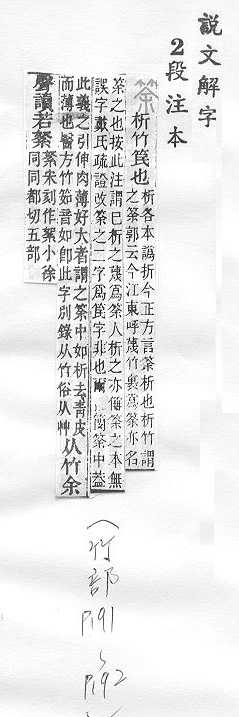 說文解字
2段注本
筡
析竹笢也
析各本譌折今正方言筡析也析竹謂
之筡郭云今江東呼篾竹裏爲筡亦名
筡之也按此注謂已析之篾爲筡人析之亦偁筡之本無
誤字戴氏疏證改筡之二字爲笢字非也爾簡筡中葢
此義之引伸肉薄好大者謂之筡中如析去青皮
而薄也醫方竹筎音如卽此字別錄从竹俗从艸
从竹余
聲讀若絮
絮朱刻作絮小徐
同同都切五部
(竹部
P191
~
P192